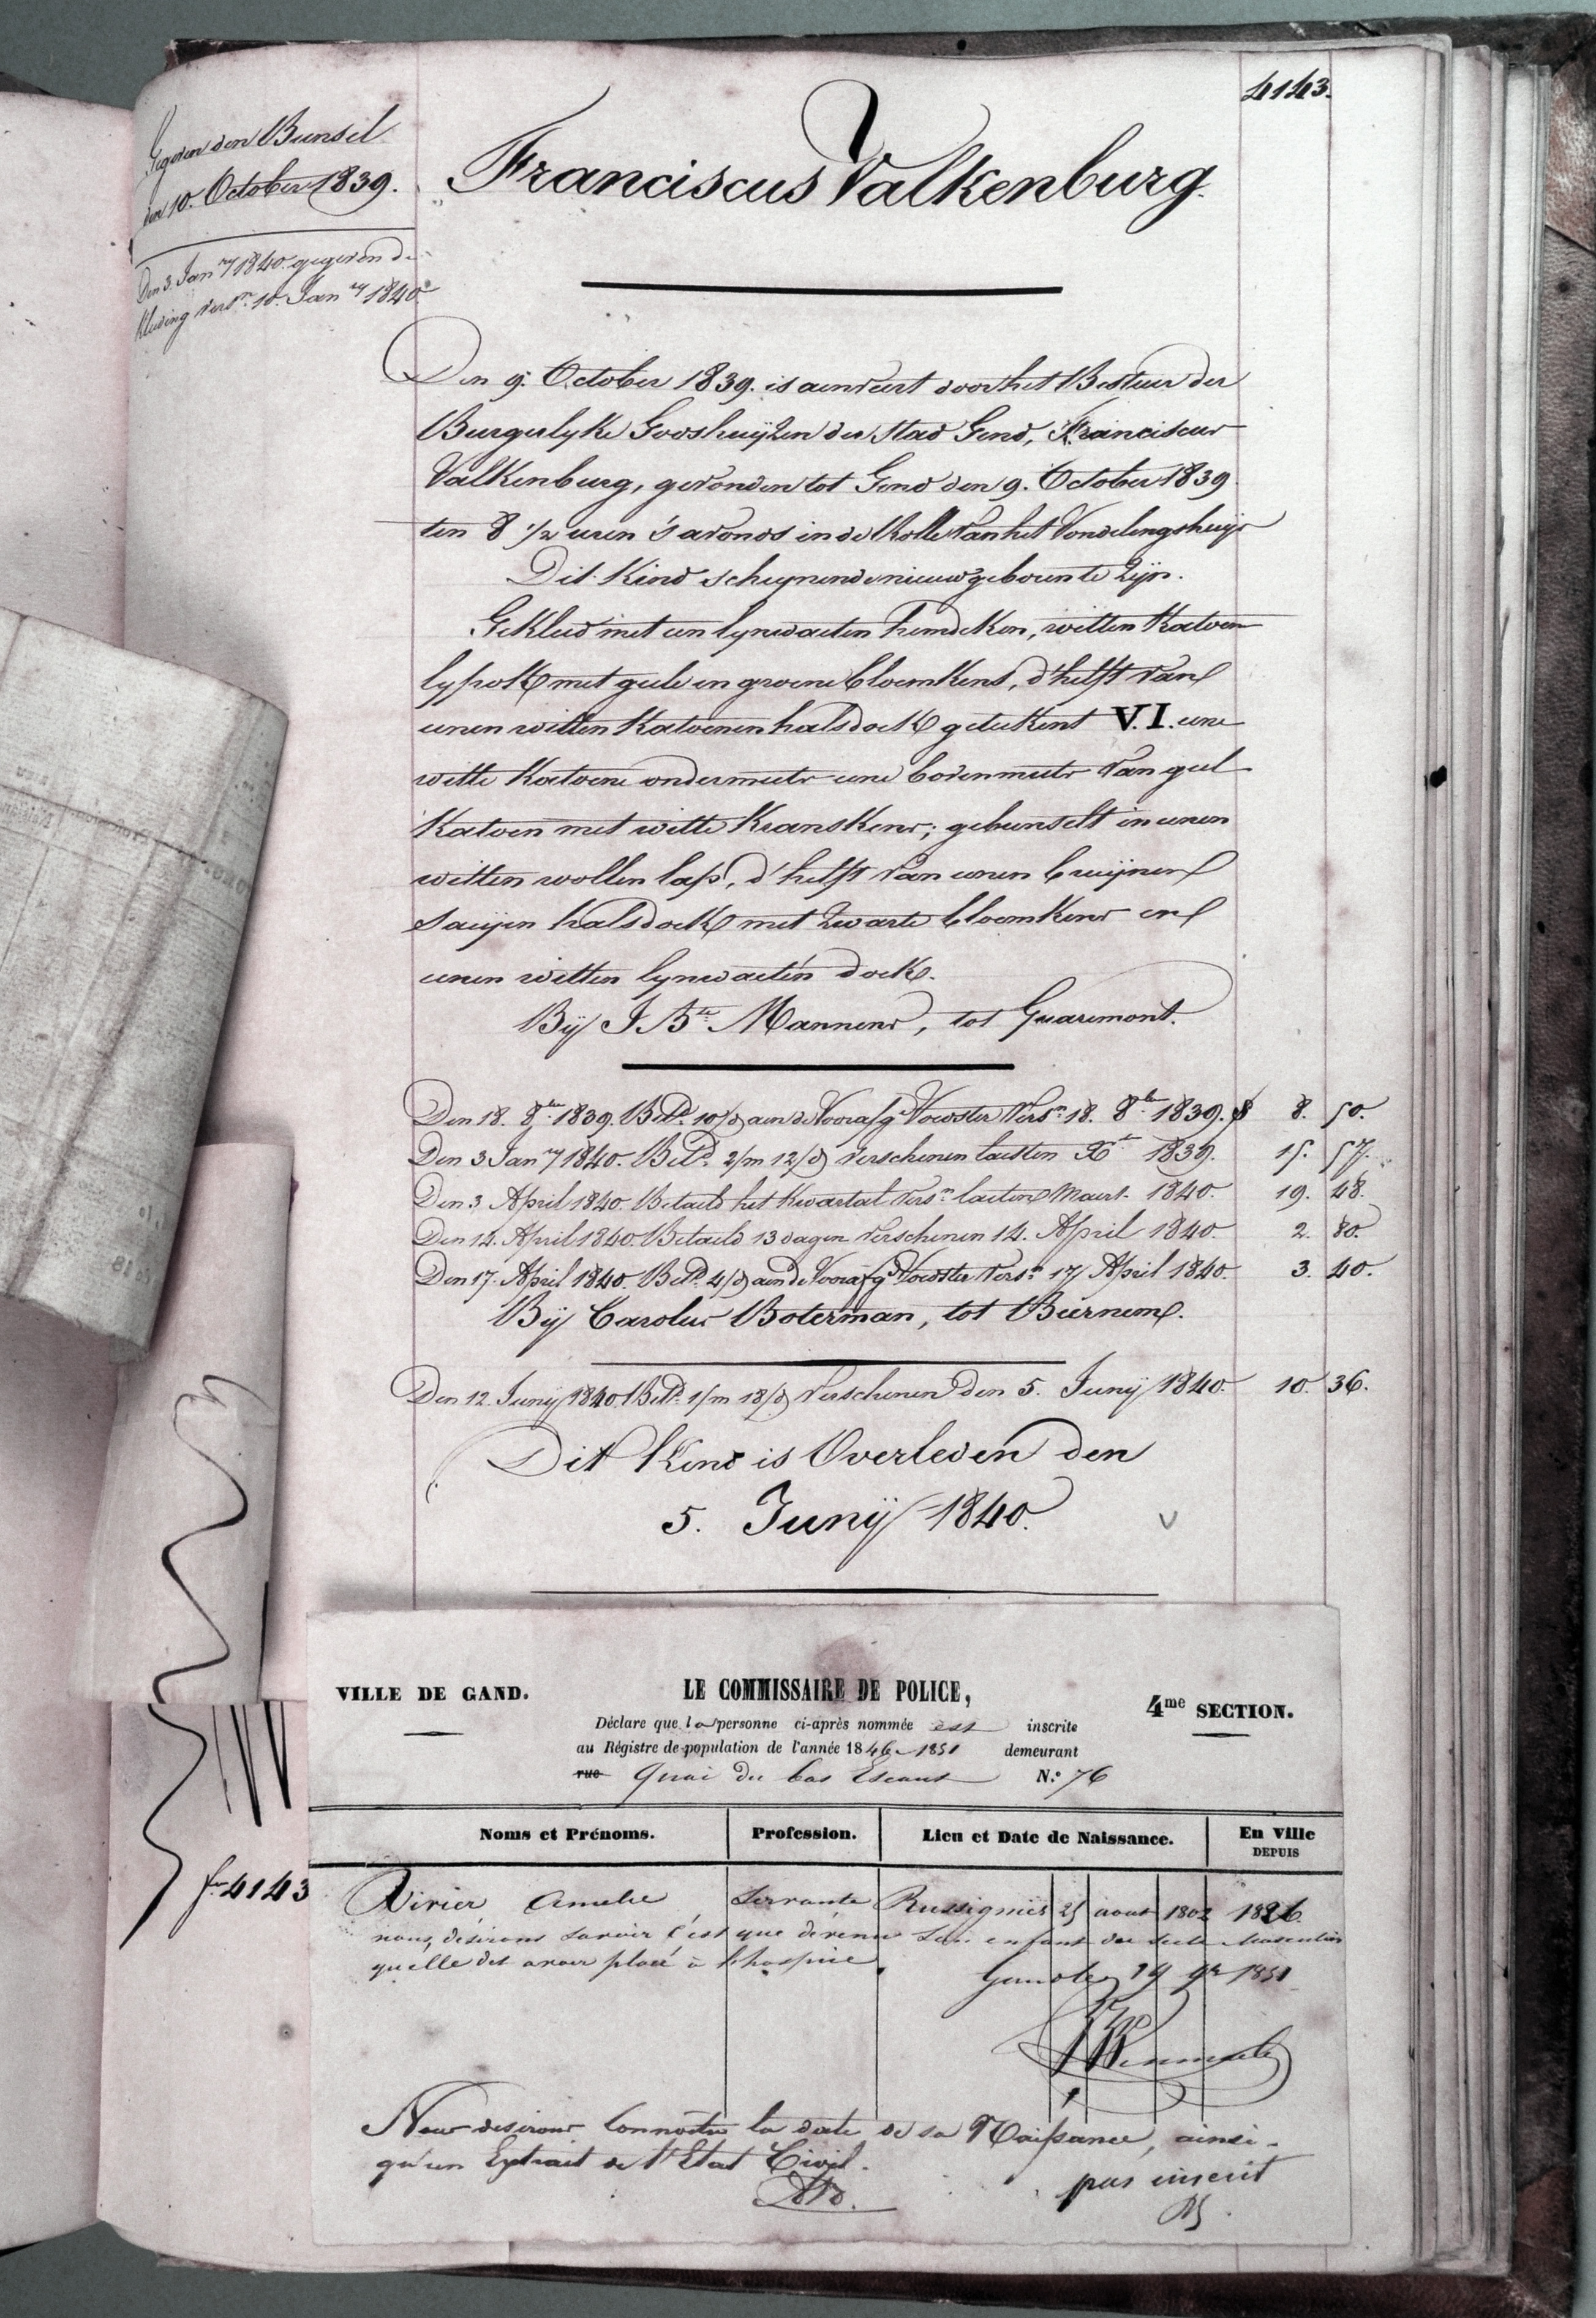 4143.
Gegeven den Bunsel
den 10. October 1839.
Den 3. Jan.ry 1840. gegeven de
kleeding vers.n 10. Jan.ry 1840.
Franciscus Valkenburg.
Den 9. October 1839. is aenveert door het Bestuer der
Burgerlyke Godshuijzen der Stad Gend, Franciscus
Valkenburg, gevonden tot Gend den 9. October 1839
ten 8 1/2 uren s'avonds in de Rolle van het Vondelingshuijs
Dit Kind schynende nieuwgeboren te zijn.
Gekleed met een lynwaeten hemdeken, witten katoen
lyfrok met geele en groene bloemkens, d'helft van
eenen witten katoenen halsdoek geteekent V.I. eene
witte katoene ondermuts eene bovenmuts van geel
katoen met witte kranskens; gebunselt in eenen
witten wollen lap, d'helft van eenen bruijnen
saeijen halsdoek met zwarte bloemkens en
eenen witten lynwaeten doek.
Bij J. B.te Mannens, tot Quaremont.
Den 18. 8.bre 1839. Bet.d 10/d aen de Vooraf.ge Voedster Vers.n 18. 8.bre 1839. f 8. 50.
Den 3 Jan.ry 1840. Bet.d 2/m 12/d verschenen laesten X.bre 1839. 15. 57.
Den 3 April 1840. Betaeld het kwartael vers.n laesten Maert 1840. 19. 48.
Den 14. April 1840. Betaeld 13 dagen verschenen 14. April 1840. 2. 80.
Den 17. April 1840. Bet.d 4/d aen de Vooraf.ge Voedster Vers.n 17 April 1840. 3. 40.
Bij Carolus Boterman, tot Beernem.
Den 12. Junij 1840. Bet.d 1/m 18/d Verschenen den 5. Junij 1840. 10. 36.
Dit Kind is Overleden den
5. Junij 1840.
VILLE DE GAND.
LE COMMISSAIRE DE POLICE,
4me SECTION.
Déclare que la personne ci-après nommée est inscrite
au Régistre de population de l'année 1846-1851 demeurant
rue Quai du bas Escaut N.° 76
Noms et Prénoms. Profession. Lieu et Date de Naissance. En Ville DEPUIS
Vivier Amelie Servante Russignies 25 aout 1802 1826.
nous desirons savoir c'est que devenu son enfant du sexe Masculin
quelle dit avoir placé à l'hospice.
Gand le 19 9bre 1851
f. 4143
Nous desirons connoitre la date de sa Naissance, ainsi
qu'un Extrait de l'Etat Civil.
pas inscrit